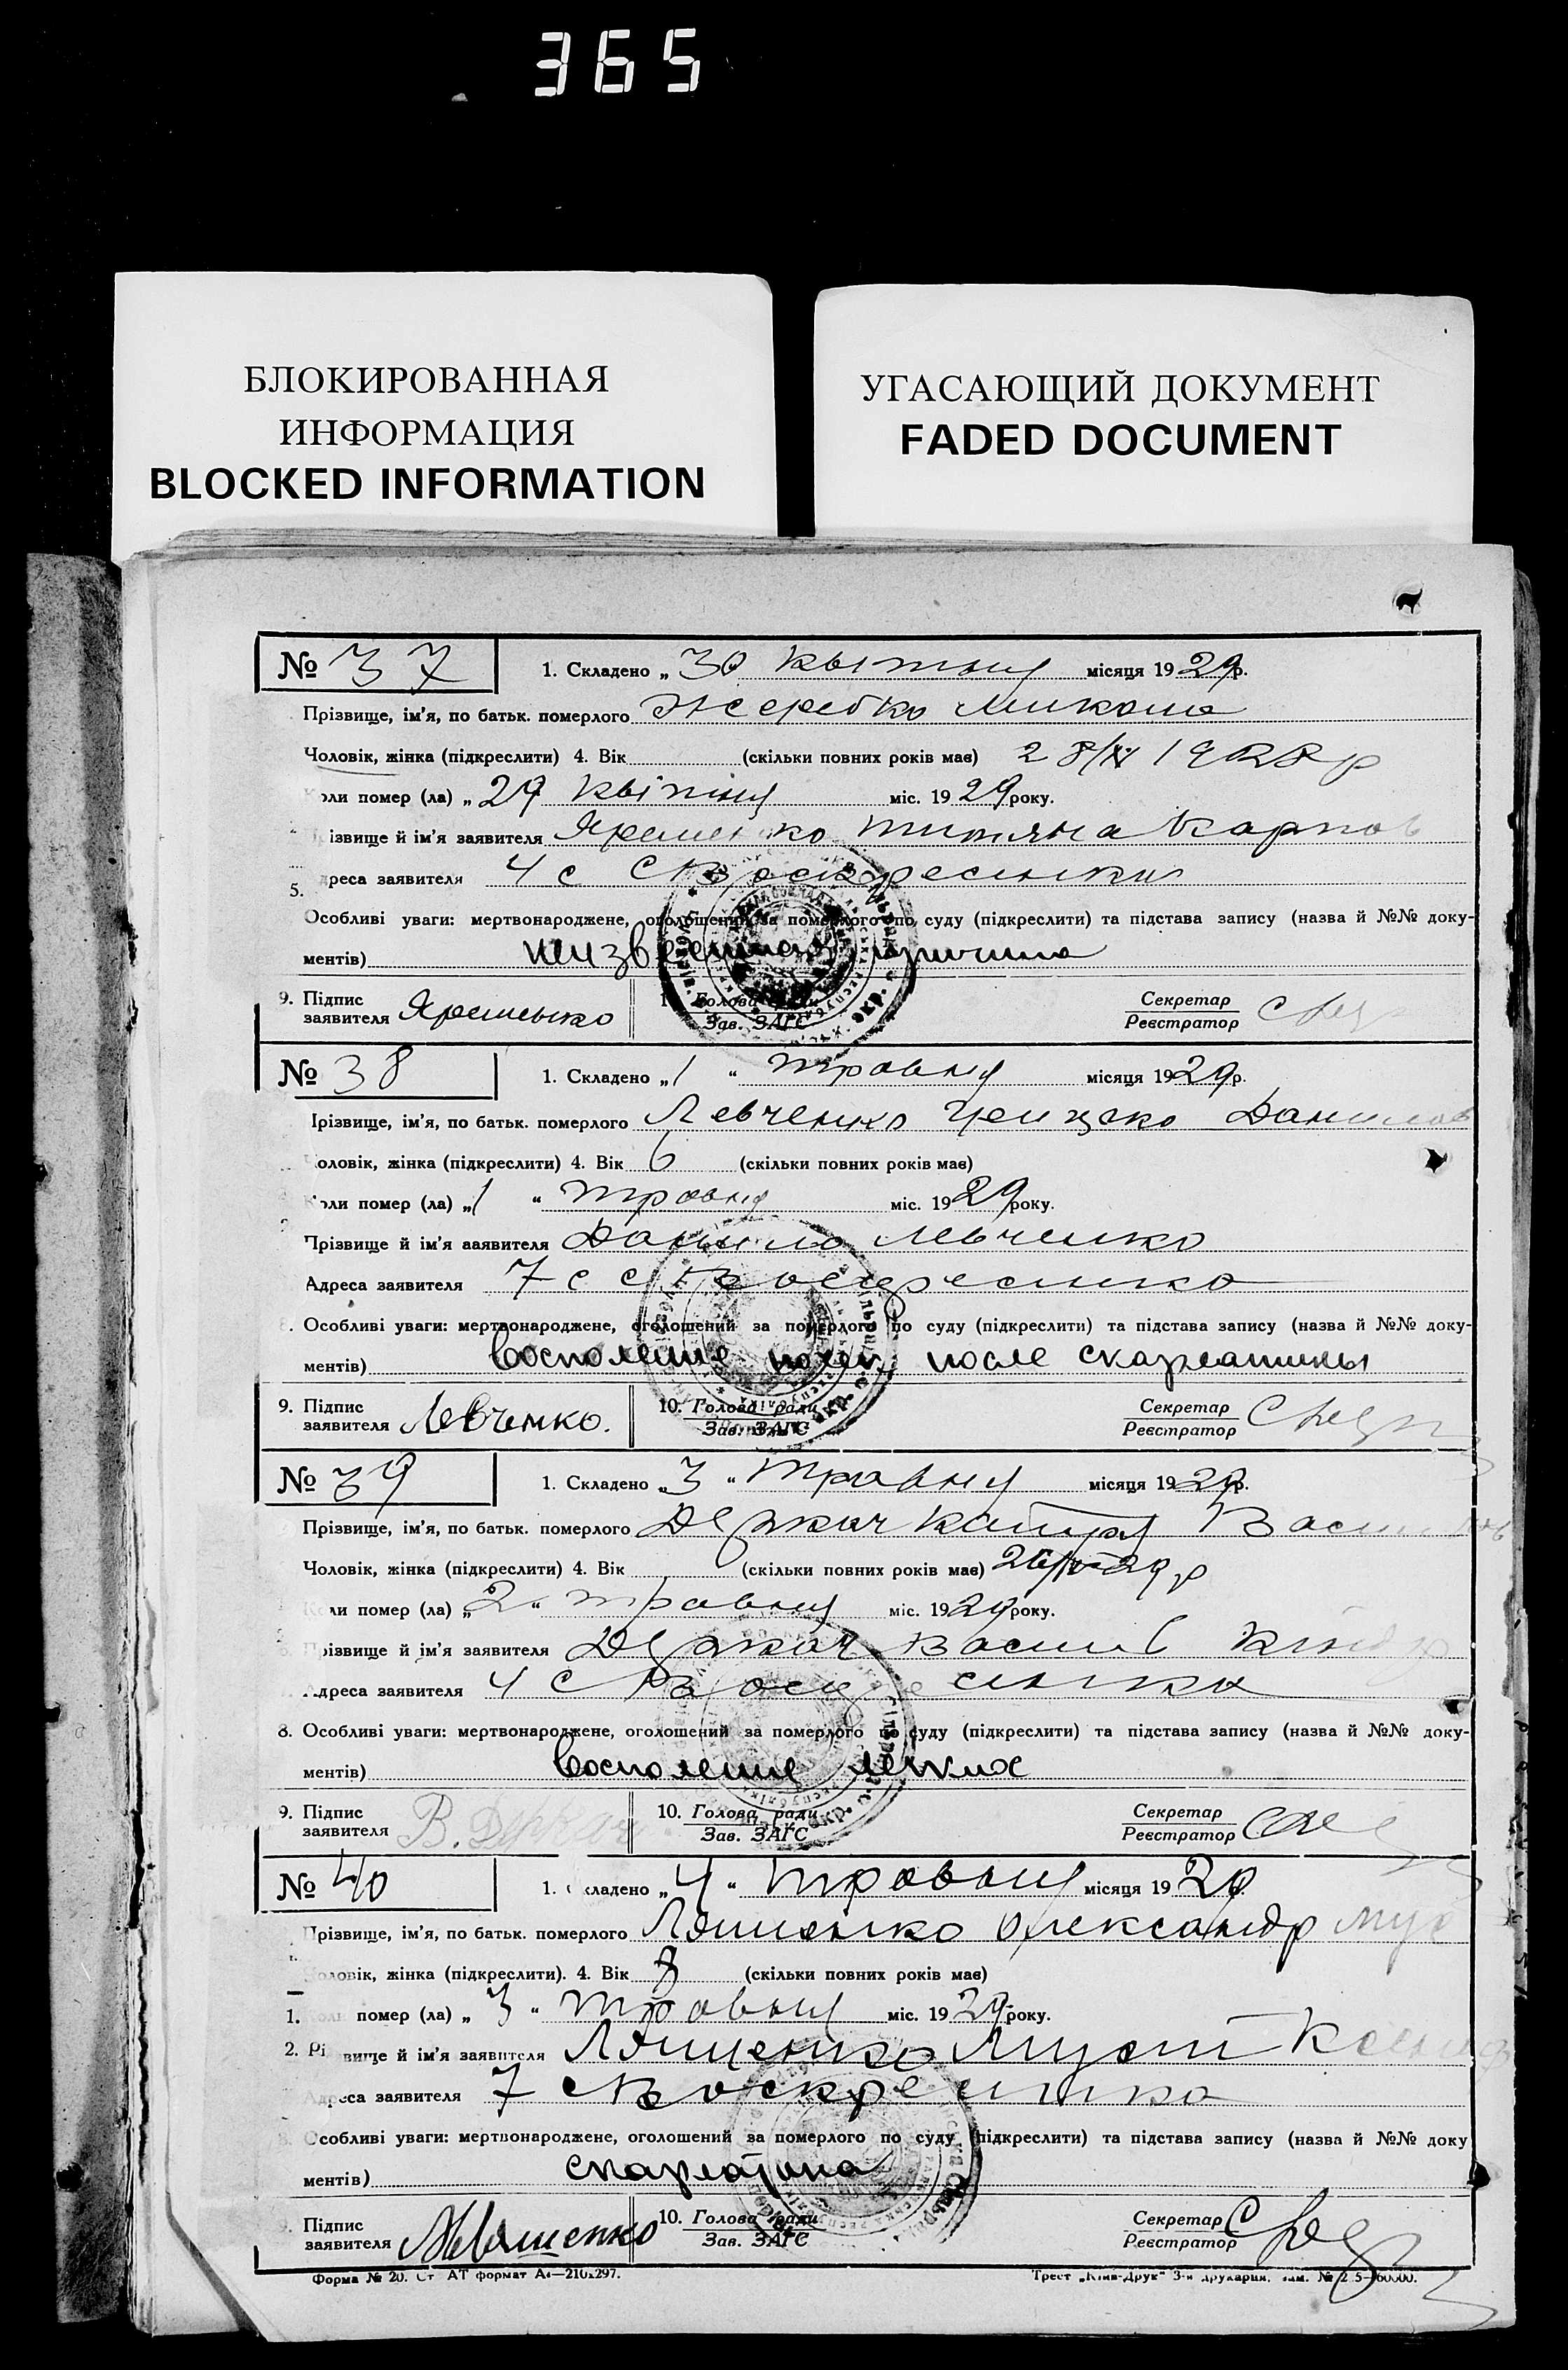 365
БЛОКИРОВАННАЯ
ИНФОРМАЦИЯ
BLOCKED INFORMATION
УГАСАЮЩИЙ ДОКУМЕНТ
FADED DOCUMENT
№ 37 1. Складено „ 30 квітня місяця 1929р.
Прізвище, ім'я, по батьк. померлого Жеребко Микола
Чоловік, жінка (підкреслити) 4. Вік (скільки повних років має) 1928 р
Коли помер (ла) „ 29 квітня міс. 1929року.
Прізвище й ім'я заявителя Яременко Титяна Карпов
5. Адреса заявителя 4 с
Особливі уваги: мертвонароджене, оголошений за померлого по суду (підкреслити) та підстава запису (назва й №№ доку-
ментів) причина
9. Підпис заявителя Яременко 10. Голова ради Зав. ЗАГС Секретар Реєстратор
№ 38 1. Складено „1 “ травня місяця 1929р.
Прізвище, ім'я, по батьк. померлого Левченко Данилов
Чоловік, жінка (підкреслити) 4. Вік 6 (скільки повних років має)
Коли помер (ла) „1 “ травня міс. 1929року.
Прізвище й ім'я заявителя Данило Левченко
Адреса заявителя 7 с с Воскресенка
Особливі уваги: мертвонароджене, оголошений за померлого по суду (підкреслити) та підстава запису (назва й №№ доку-
ментів) Восполение почек после скарлатины
9. Підпис заявителя Левченко. 10. Голова ради Зав. ЗАГС Секретар Реєстратор
№ 39 1. Складено „3 “ травня місяця 1929р.
Прізвище, ім'я, по батьк. померлого Держач Катря Васильов
Чоловік, жінка (підкреслити) 4. Вік (скільки повних років має) 29 р
Коли помер (ла) „2 “ травня міс. 1929року.
Прізвище й ім'я заявителя Держач Василь
Адреса заявителя 4 с Воскресенка
8. Особливі уваги: мертвонароджене, оголошений за померлого по суду (підкреслити) та підстава запису (назва й №№ доку-
ментів) Восполение легких
9. Підпис заявителя В. Держач 10. Голова ради Зав. ЗАГС Секретар Реєстратор
№ 40 1. Складено „4 “ травня місяця 1929
Прізвище, ім'я, по батьк. померлого Ляшенко Олександр
Чоловік, жінка (підкреслити). 4. Вік (скільки повних років має)
1. Коли помер (ла) „ 3 “ травня міс. 1929року.
2. Прізвище й ім'я заявителя Лященко Мусій
Адреса заявителя 7 с Воскресенка
Особливі уваги: мертвонароджене, оголошений за померлого по суду (підкреслити) та підстава запису (назва й №№ доку
ментів) скарлатина
9. Підпис заявителя М Ляшенко 10. Голова ради Зав. ЗАГС Секретар Реєстратор
Форма № 20. Ст АТ формат А4—210x297. Трест „Київ-Друк“ 3-я друкарня.